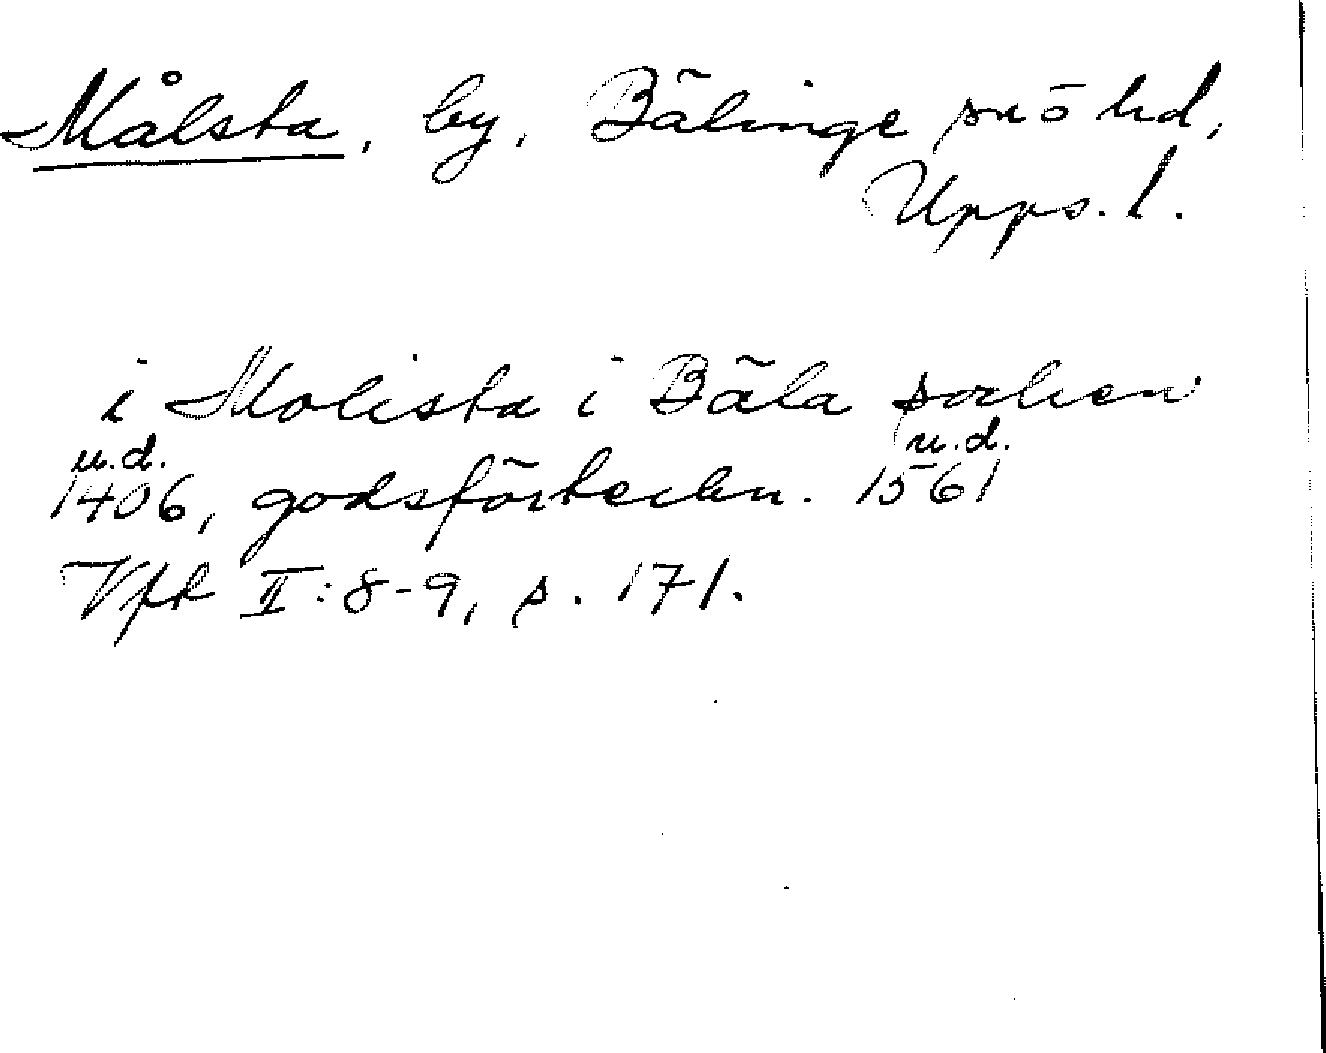 Målsta, by, Bälinge sn ö hd,
Upps. l.
i Molista i Bäla sochen
u.d. u.d.
1406, godsförteckn. 1561
Vfk II:8-9, s. 171.